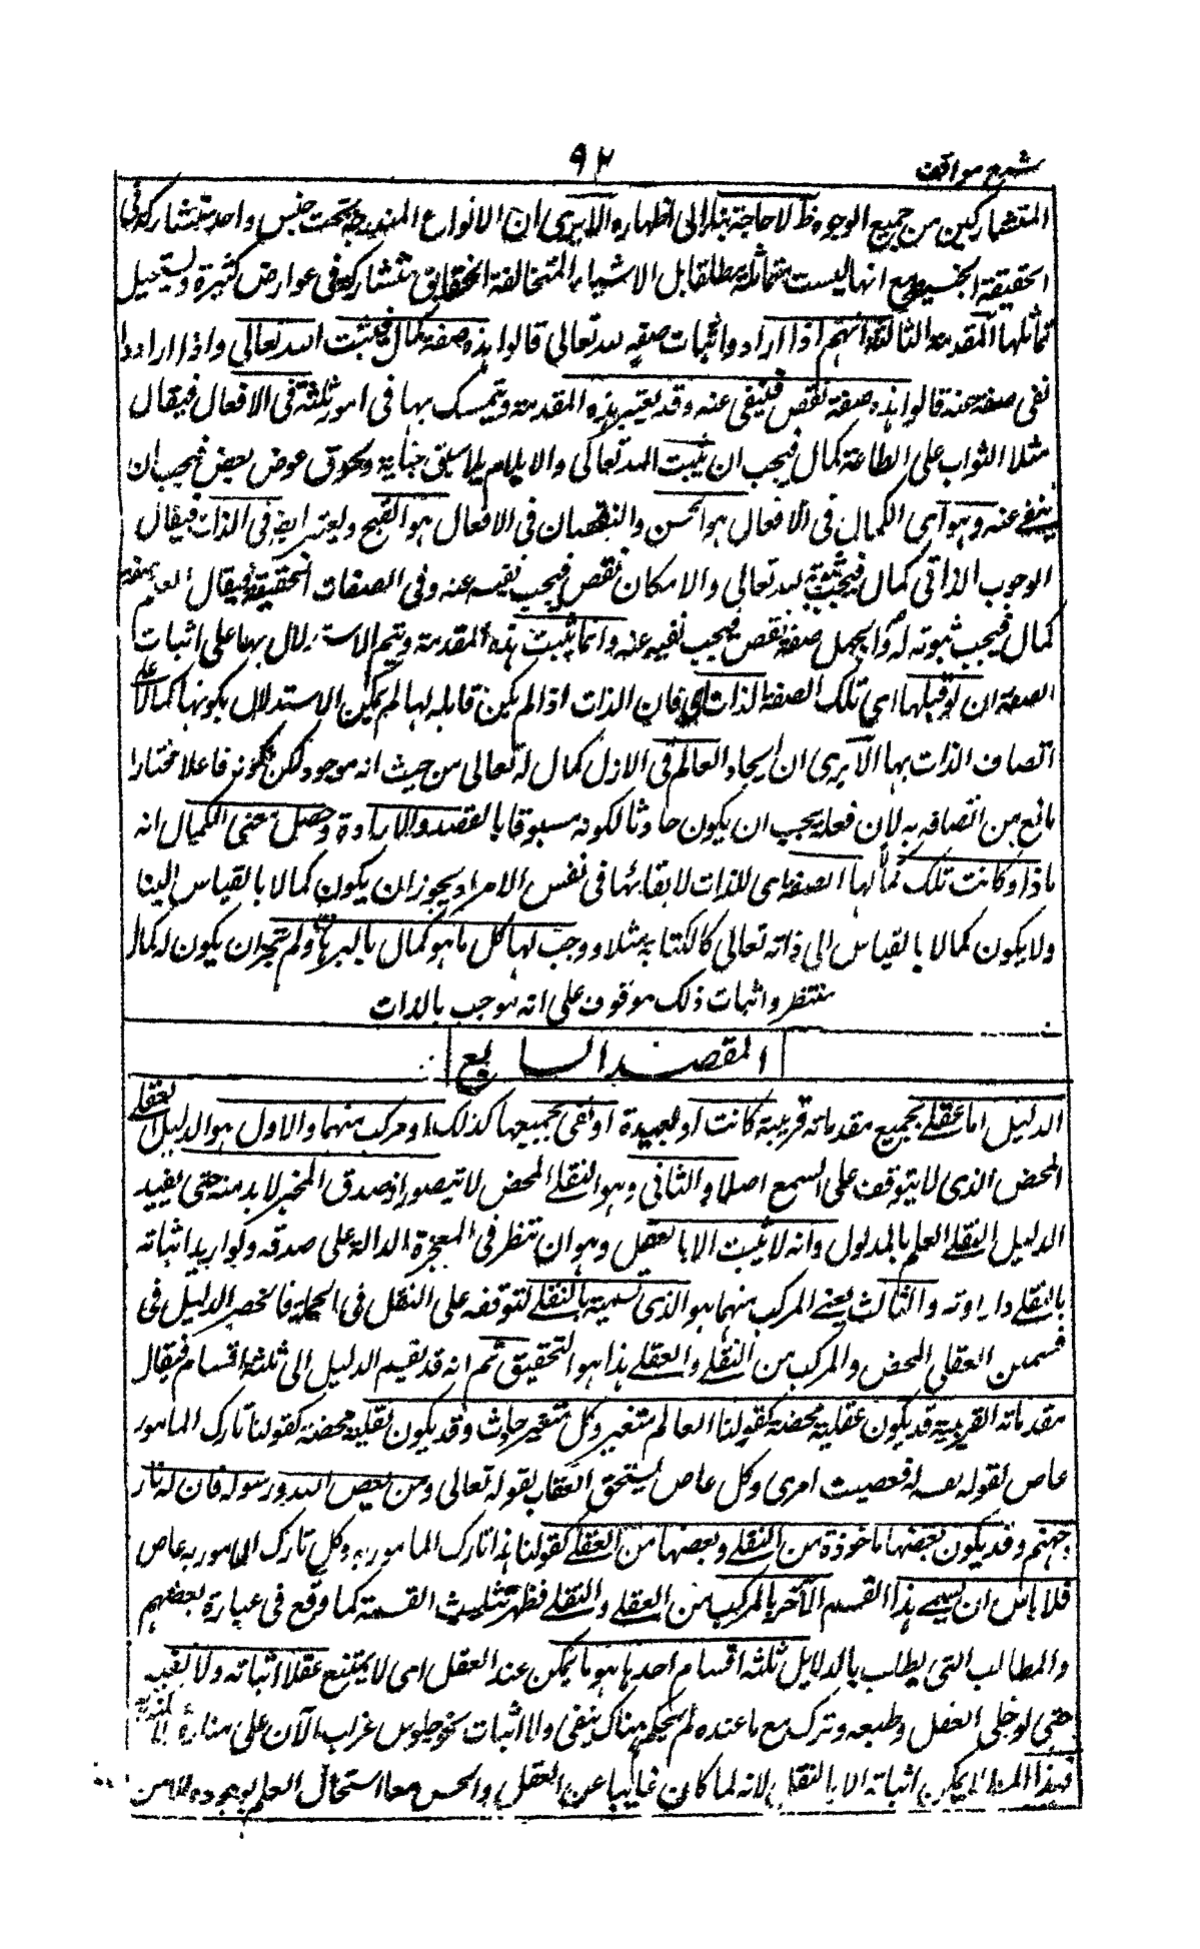 شرح مواقف
٩٢
المتشاركين من جميع الوجوه ظ لا حاجة بنا الى اظهاره الا يرى ان الانواع المندرجة تحت جنس واحد متشاركة فى
الحقيقة الجنسية مع انها ليست متماثلة مطلقا بل الاشياء المتخالفة الحقايق متشاركة فى عوارض كثيرة ويستحيل
تماثلها المقدمة الثالثة انهم اذا ارادوا اثبات صفة لله تعالى قالوا هذه صفة كمال فيثبت لله تعالى واذا ارادوا
نفى صفة عنه قالوا هذه صفة نقص فينفى عنه وقد يعتبر هذه المقدمة ويتمسك بها فى امور ثلثة فى الافعال فيقال
مثلا الثواب على الطاعة كمال فيجب ان يثبت لله تعالى والايلام بلا سبق جناية ولحوق عوض نقص فيجب ان
ينفى عنه وهو اى الكمال فى الافعال هو الحسن والنقصان فى الافعال هو القبح ويعتبر ايضا فى الذات فيقال
الوجوب الذاتى كمال فيجب ثبوته لله تعالى والامكان نقص فيجب نفيه عنه وفى الصفات الحقيقية فيقال العلم صفة
كمال فيجب ثبوته له والجهل صفة نقص فيجب نفيه عنه وانما يثبت هذه المقدمة ويتم الاستدلال بها على اثبات
الصفة ان لو قبلها اى تلك الصفة الذات فان الذات اذا لم يكن قابله لها لم يمكن الاستدلال بكونها كمالا على
اتصاف الذات بها الا يرى ان ايجاد العالم فى الازل كمال له تعالى من حيث انه موجود لكن كونه فاعلا مختارا
مانع من اتصافه به لان فعله يجب ان يكون حادثا لكونه مسبوقا بالقصد والارادة وحصل معنى الكمال انه
ماذا وكانت تلك كمالها الصفة اى للذات لابقائها فى نفس الامر اذ يجوز ان يكون كمالا بالقياس الينا
ولا يكون كمالا بالقياس الى ذاته تعالى كالكتابة مثلا ووجب لها كل ما هو كمال بالبرهان ولم يجز ان يكون له كمال
منتظر واثبات ذلك موقوف على انه موجب بالذات
المقصد السابع
الدليل اما عقلى بجميع مقدماته قريبة كانت او بعيدة او نقلى بجميعها كذلك او مركب منهما والاول هو الدليل العقلى
المحض الذى لا يتوقف على السمع اصلا والثانى وهو النقلى المحض لا يتصور اذ صدق المخبر لا بد منه حتى يفيد
الدليل النقلى العلم بالمدلول وانه لا يثبت الا بالعقل وهو ان تنظر فى المعجزة الدالة على صدقه ولو اريد اثباته
بالنقلى دار او ته والثالث يعنى المركب منهما هو الذى نسميه بالنقلى لتوقفه على النقل فى الجملة فانحصر الدليل فى
قسمين العقلى المحض والمركب من النقلى والعقلى هذا هو التحقيق ثم انه قد يقسم الدليل الى ثلثة اقسام فيقال
مقدماته القريبة قد يكون عقلية محضة كقولنا العالم متغير وكل متغير حادث وقد يكون نقلية محضة كقولنا تارك المامور
عاص لقوله تعالى افعصيت امرى وكل عاص يستحق العقاب لقوله تعالى ومن يعص الله ورسوله فان له نار
جهنم وقد يكون بعضها ماخوذة من النقلى وبعضها من العقلى كقولنا هذا تارك المامور به وكل تارك المامور به عاص
فلا باس ان يسمى هذا القسم الآخر بالمركب من العقلى والنقلى فظهر تثليث القسمة كما وقع فى عبارة بعضهم
والمطالب التى يطلب بالدلايل ثلثة اقسام احدها هو ما يمكن عند العقل اى لا يمتنع عقلا اثباته ولا نفيه
حتى لو خلى العقل وطبعه وترك مع ما عنده لم يحكم هناك بنفى ولا اثبات نحو جلوس غراب الآن على منارة الاسكندرية
فهذا المطلب لا يمكن اثباته الا بالنقل لانه لما كان غايبا عن العقل والحس معا استحال العلم بوجوده الا من